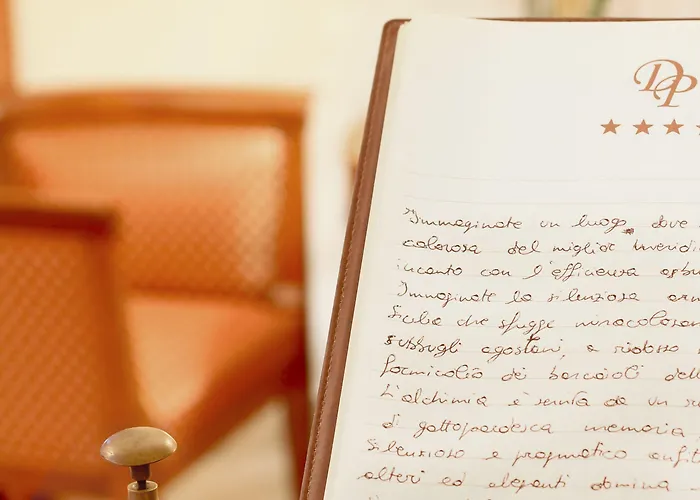 DP
Immaginate un luogo dove
calorosa del miglior
incanto con l'efficenza
Immaginate la silenziosa
che sfugge miracolosa
subbugli agostani, a ridosso
formicolio dei barcaioli dell
L'alchimia è servita da un
di gattopardesca memoria
silenzioso e pragmatico
alteri ed eleganti domina